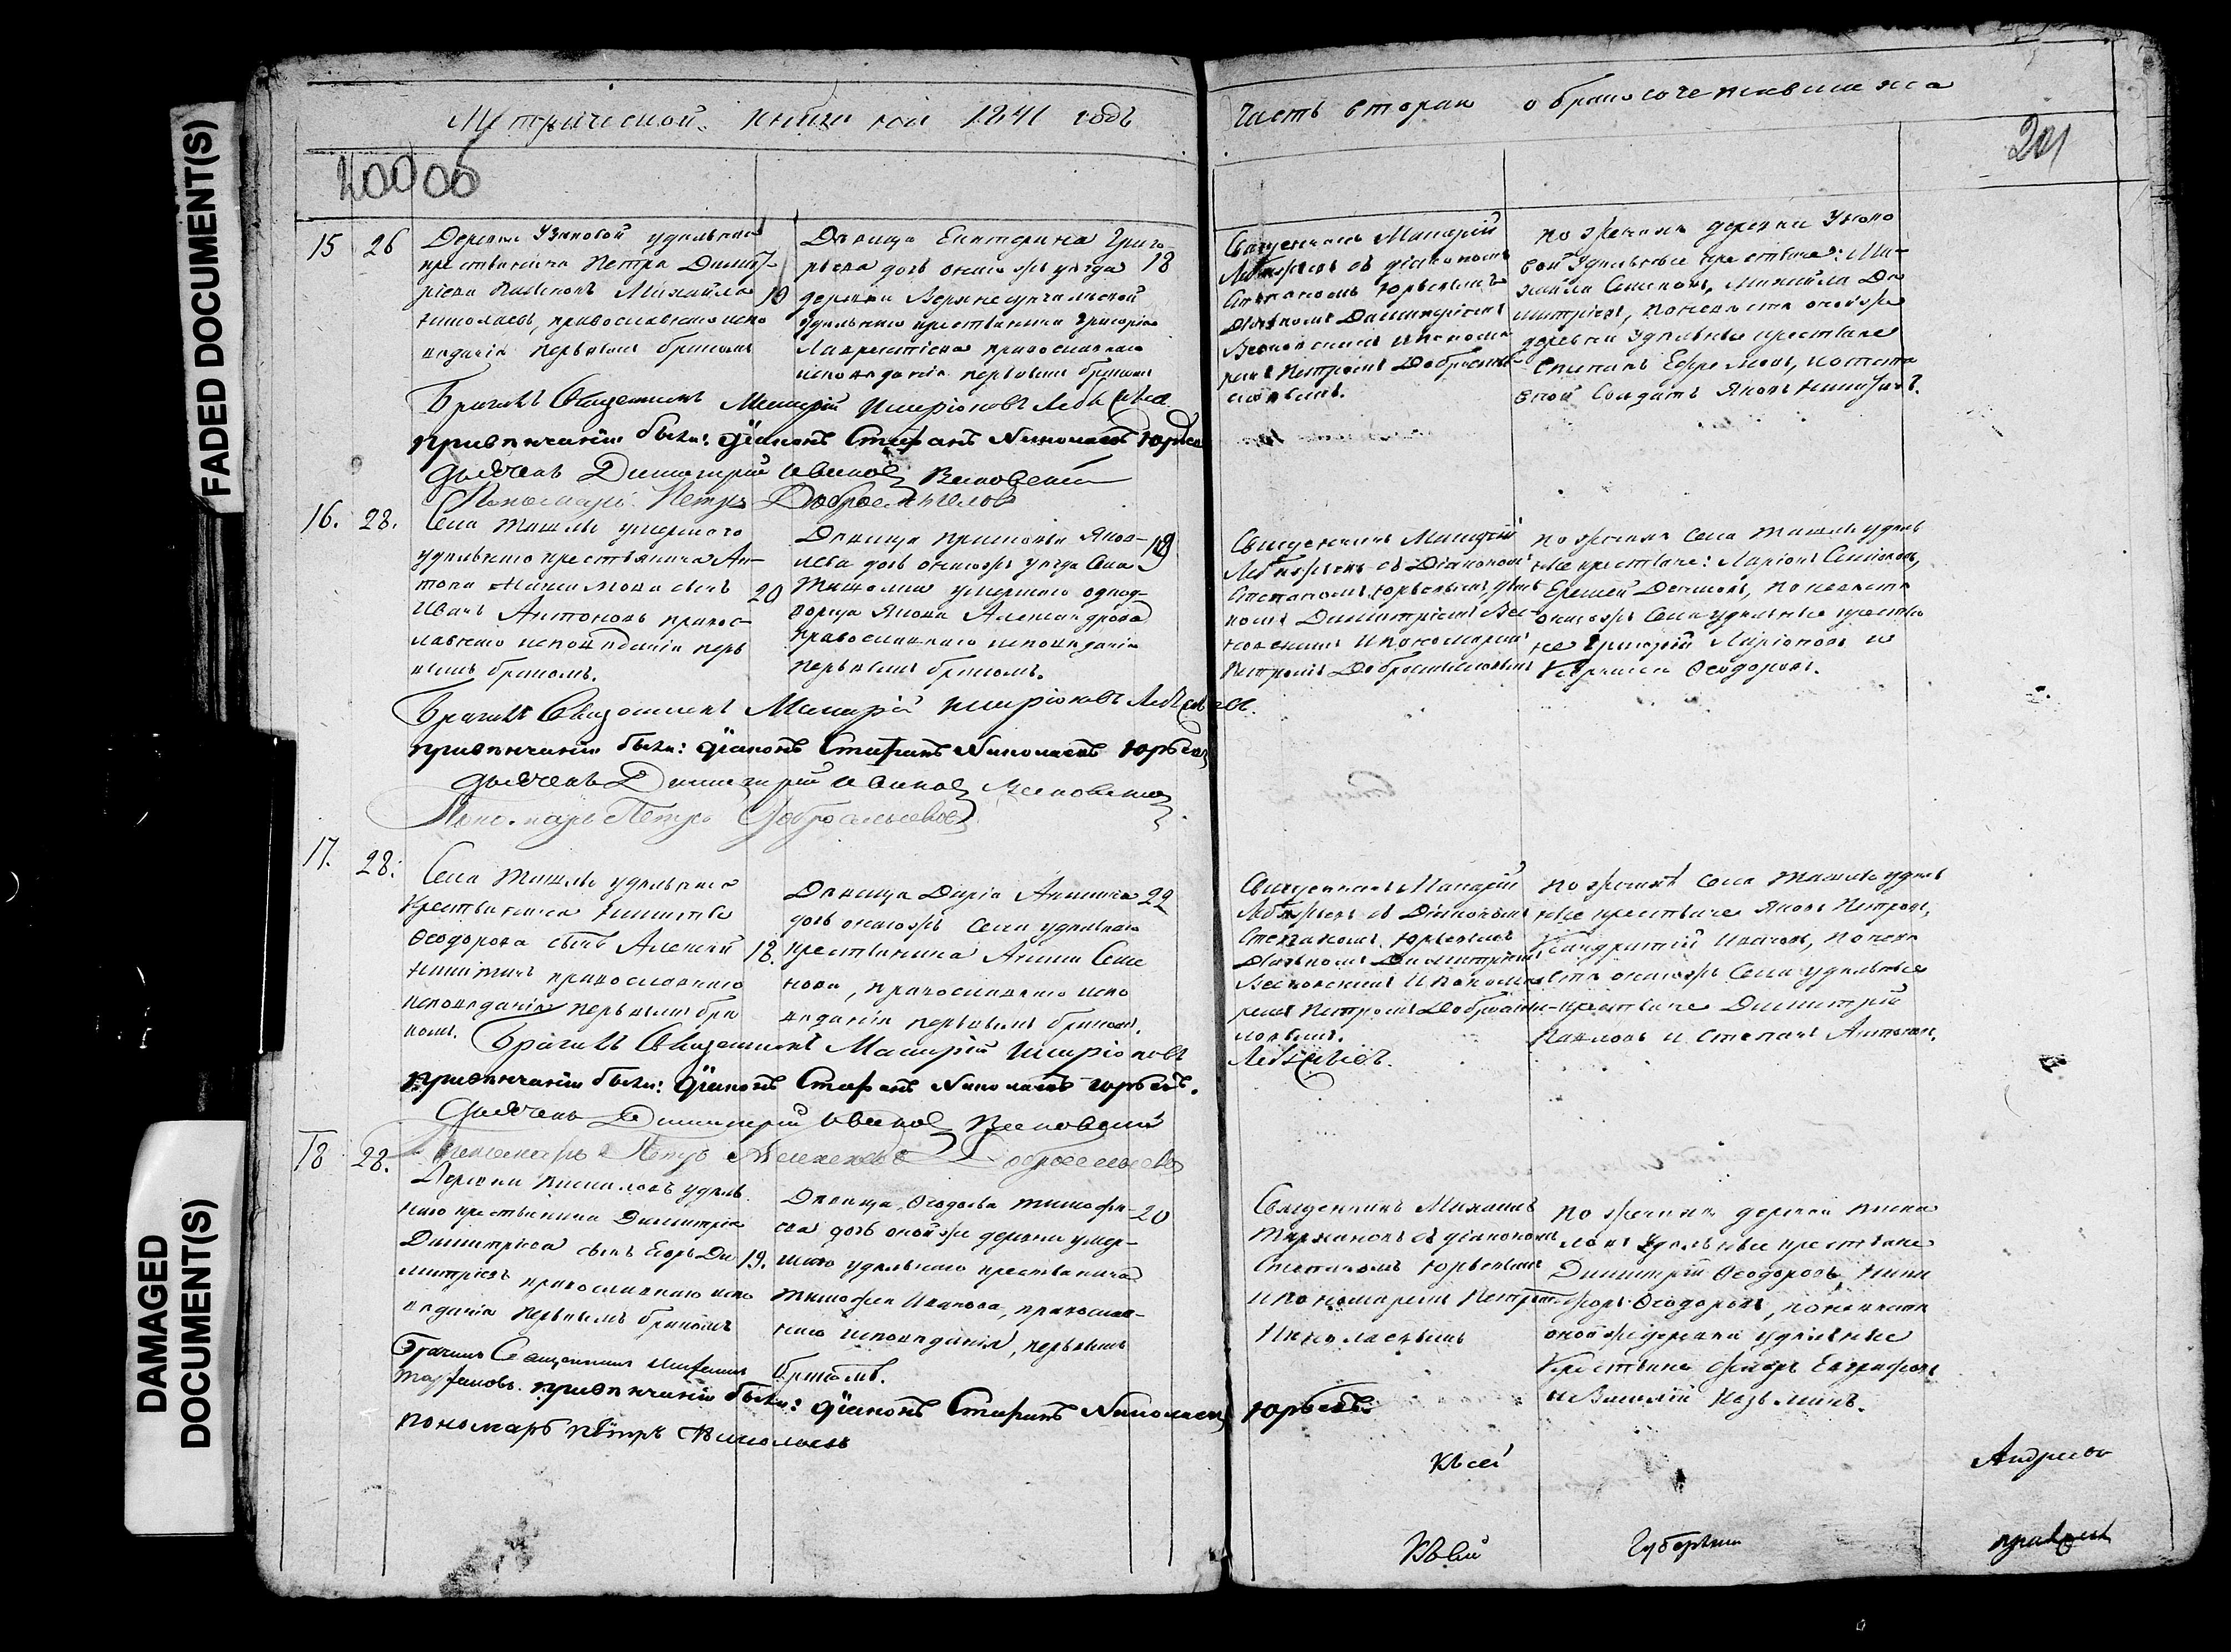 FADED DOCUMENT(S)
DAMAGED
DOCUMENT(S)
Метрической книги на 1841 годъ
часть вторая о бракосочетавшихся
200об
201
15 26
Деревни Узиковой удельнаго
крестьянина Петра Димит-
ріева Михайла
Николаевъ, православнаго испо
веданія первымъ бракомъ
19
Девица Екатерина Григо
рьева дочь онаго же уезда
деревни
удельнаго крестьянина Григорія
Лаврентіева православнаго
исповеданія первымъ бракомъ
18
Священникъ Макарій
Лебяжьевъ съ діакономъ
Стефаномъ Юрьевымъ
Дьячкомъ Димитріемъ
Весновскимъ и понома
ремъ Петромъ Добросмы
словымъ.
по женихе деревни Узико
вой Удельные крестьяне: Ми-
хайла Семеновъ, Михайла Ди
митріевъ, по невесте оной же
деревни Удельные крестьяне
Степанъ Ефремовъ,
солдатъ Яковъ Никитинъ.
Бракъ венч. Священникъ Макарій Иларіоновъ Лебяжьевъ
при венчаніи были: діаконъ Стефанъ Николаевъ Юрьев
дьячекъ Димитрій Ивановъ Весновскій
Пономарь Петръ Добросмысловъ
16. 28.
Села Тишли умершаго
удельнаго крестьянина Ан-
тона Максимова сынъ
Иванъ Антоновъ правос-
лавнаго исповеданія перв
ымъ бракомъ.
20
Девица Прасковья Яков-
лева дочь онаго же уезда Села
умершаго однод-
ворца Якова Александрова
православнаго исповеданія
первымъ бракомъ.
19
Священникъ Макарій
Лебяжьевъ съ Діакономъ
Стефаномъ Юрьевымъ, дьяч
комъ Димитріемъ Вес-
новскимъ и пономаремъ
Петромъ Добросмысловымъ
по женихе села Тишли удель
ные крестьяне: Ларіонъ Симоновъ,
Ермей Денисовъ, по невесте
онаго же Села удельные крестья
не Григорій Ларіоновъ и
Феодоровъ.
Бракъ венч. Священникъ Макарій Иларіоновъ Лебяжьевъ.
при венчаніи были: діаконъ Стефанъ Николаевъ Юрьевъ
дьячекъ Димитрій Ивановъ Весновскій
Пономарь Петръ Добросмысловъ
17. 28.
Села Тишли удельнаго
крестьянина Никиты
Феодорова сынъ Алексей
Никитинъ православнаго
исповеданія первымъ бра
комъ.
18.
Девица Дарія Акимова
дочь онаго же села удельнаго
крестьянина Акима Семе
нова, православнаго испо
веданія первымъ бракомъ.
22
Священникъ Макарій
Лебяжьевъ съ Діакономъ
Стефаномъ Юрьевымъ
Дьячкомъ Димитріемъ
Весновскимъ и понома
ремъ Петромъ Добросмы-
словымъ.
по женихе села Тишли удель
ные крестьяне Яковъ Петровъ,
Кандратій Ивановъ, по неве
сте онаго же Села удельные
крестьяне Димитрій
Павловъ и Степанъ Антоновъ.
Бракъ венч. Священникъ Макарій Иларіоновъ
Лебяжьевъ.
при венчаніи были: діаконъ Стефанъ Николаевъ Юрьевъ.
дьячекъ Димитрій Ивановъ Весновскій
Пономарь Петръ Добросмысловъ
18 28.
Деревни удель
наго крестьянина Димитрія
Димитріева сынъ Егоръ Ди
митріевъ православнаго испо
веданія первымъ бракомъ
19.
Девица Феодосья Тимофе-
ева дочь оной же деревни умер-
шаго удельнаго крестьянина
Тимофея Иванова, православ-
наго исповеданія, первымъ
бракомъ.
20
Священникъ Михаилъ
Тархановъ съ діакономъ
Стефаномъ Юрьевымъ
и пономаремъ Петромъ
Николаевымъ
по женихе деревни
удельные крестьяне
Димитрій Феодоровъ, Ники
форъ Феодоровъ, по невесте
оной же деревни удельные
крестьяне Евграфовъ
и Василій Козьминъ.
Бракъ венч. Священникъ Михаилъ
Тархановъ. при венчаніи были: діаконъ Стефанъ Николаевъ Юрьевъ
пономарь Петръ Николаевъ
Къ сей
Андреевъ
Къ сей
Губерніи